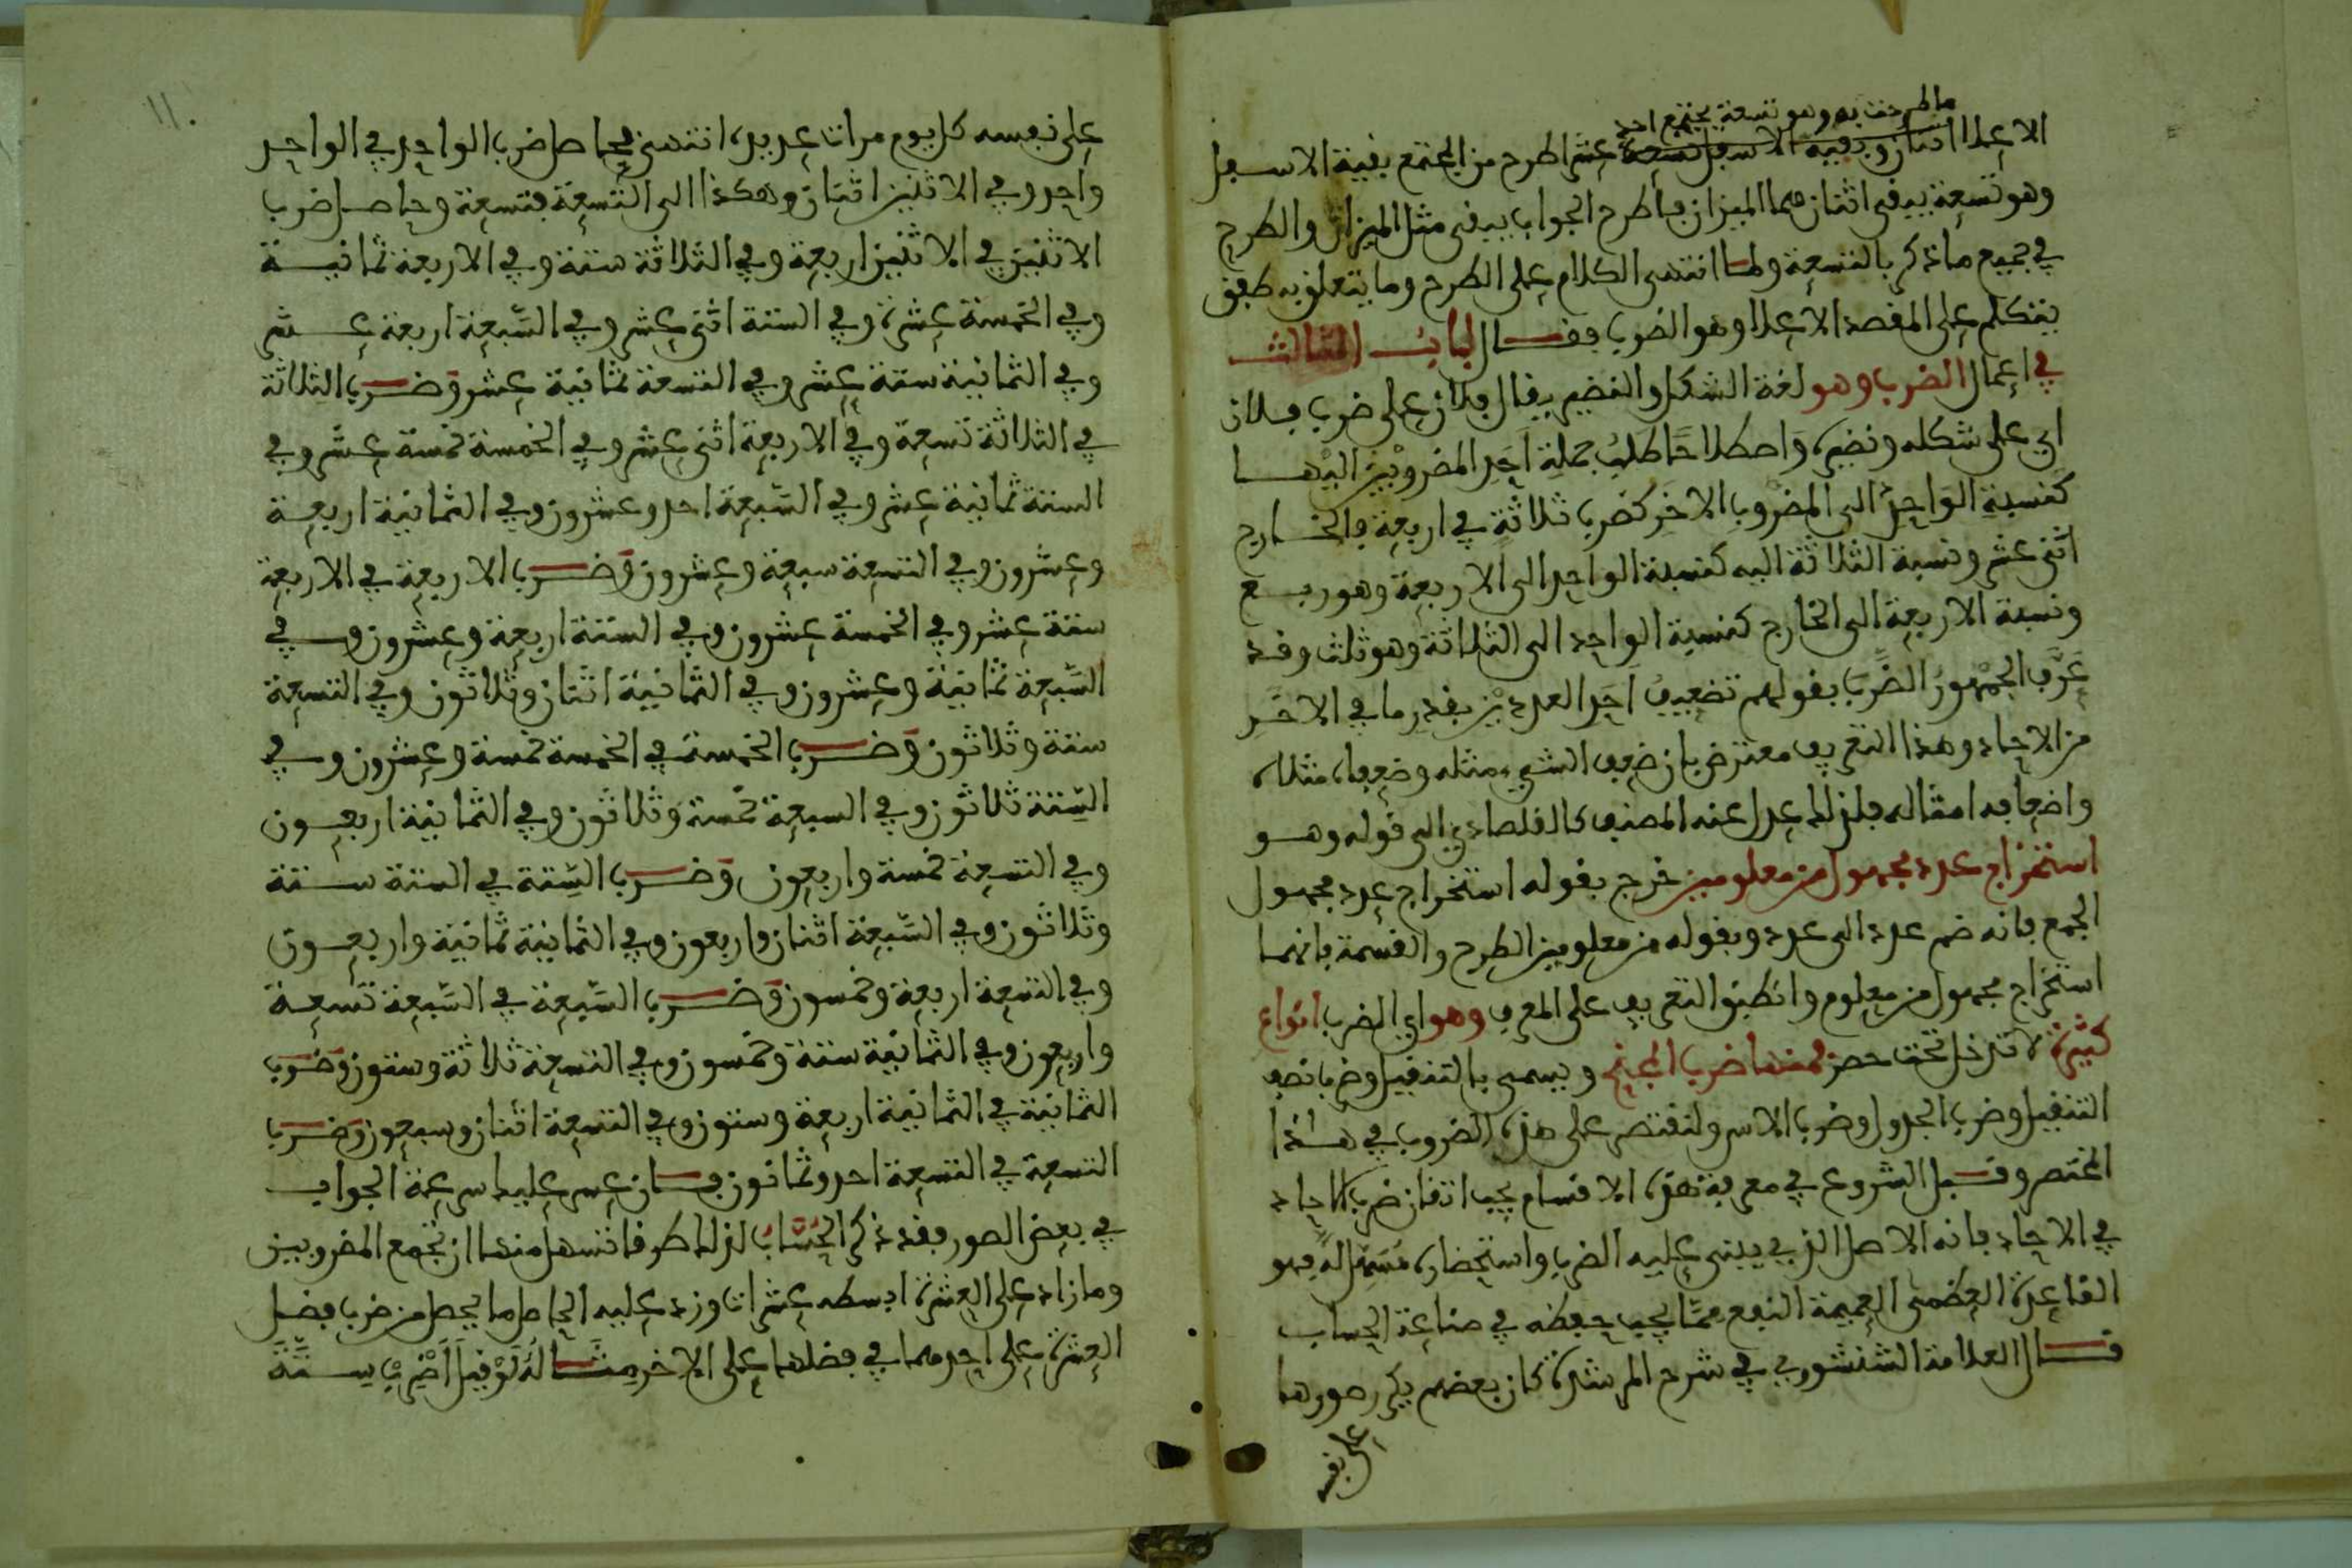 ما طرحت به وهو تسعة يجتمع احد
الاعلا اثنان وبقية الاسفل تسعة عشر اطرح من المجتمع بقية الاسفل
وهو تسعة يبقى اثنان هما الميزان فاطرح الجواب يبقى مثل الميزان والطرح
في جميع ما ذكر بالتسعة ولما انتهى الكلام على الطرح وما يتعلق به طفق
يتكلم على المقصد الاعلا وهو الضرب فقال الباب الثالث
في اعمال الضرب وهو لغة الشكل والنضير يقال فلان على ضرب فلان
اي على شكله ونضيره واصطلاحا طلب جملة احد المضروبين اليها
كنسبة الواحد الى المضروب الاخر كضرب ثلاثة في اربعة فالخارج
اثنى عشر ونسبة الثلاثة اليه كنسبة الواحد الى الاربعة وهو ربع
ونسبة الاربعة الى الخارج كنسبة الواحد الى الثلاثة وهو ثلث وقد
عرف الجمهور الضرب بقولهم تضعيف احد العددين بقدر ما في الاخر
من الاحاد وهذا التعريف معترض بان ضعف الشيء مثله وضعفاه مثلاه
واضعافه امثاله فلذلك عدل عنه المصنف كالقلصادي الى قوله وهو
استخراج عدد مجهول من معلومين خرج بقوله استخراج عدد مجهول
الجمع فانه ضم عدد الى عدد وبقوله من معلومين الطرح والقسمة فانهما
استخراج مجهول من معلوم وانطبق التعريف على المعرف وهو اي الضرب انواع
كثيرة لا تدخل تحت حصر فمنها ضرب المجنح ويسمى بالتنقيل وضرب نصف
التنقيل وضرب الجدول وضرب الاس ولنقتصر على هذه الضروب في هذا
المختصر وقبل الشروع في معرفة هذه الاقسام يجب اتقان ضرب الاحاد
في الاحاد فانه الاصل الذي يبنى عليه الضرب واستحضاره مسهل له فهو
القاعدة العظمى العميمة النفع مما يجب حفظه في صناعة الحساب
قال العلامة الشنشوري في شرح المرشدة كان بعضهم يكرر صورها
على نفسه
١١٠
على نفسه كل يوم مرات عديدة انتهى فحاصل ضرب الواحد في الواحد
واحد وفي الاثنين اثنان وهكذا الى التسعة فتسعة وحاصل ضرب
الاثنين في الاثنين اربعة وفي الثلاثة ستة وفي الاربعة ثمانية
وفي الخمسة عشرة وفي الستة اثنى عشر وفي السبعة اربعة عشر
وفي الثمانية ستة عشر وفي التسعة ثمانية عشر وضرب الثلاثة
في الثلاثة تسعة وفي الاربعة اثنى عشر وفي الخمسة خمسة عشر وفي
الستة ثمانية عشر وفي السبعة احد وعشرون وفي الثمانية اربعة
وعشرون وفي التسعة سبعة وعشرون وضرب الاربعة في الاربعة
ستة عشر وفي الخمسة عشرون وفي الستة اربعة وعشرون وفي
السبعة ثمانية وعشرون وفي الثمانية اثنان وثلاثون وفي التسعة
ستة وثلاثون وضرب الخمسة في الخمسة خمسة وعشرون وفي
الستة ثلاثون وفي السبعة خمسة وثلاثون وفي الثمانية اربعون
وفي التسعة خمسة واربعون وضرب الستة في الستة ستة
وثلاثون وفي السبعة اثنان واربعون وفي الثمانية ثمانية واربعون
وفي التسعة اربعة وخمسون وضرب السبعة في السبعة تسعة
واربعون وفي الثمانية ستة وخمسون وفي التسعة ثلاثة وستون وضرب
الثمانية في الثمانية اربعة وستون وفي التسعة اثنان وسبعون وضرب
التسعة في التسعة احد وثمانون فان عسر عليك سرعة الجواب
في بعض الصور فقد ذكر الحساب لذلك طرقا اسهل منها ان تجمع المضروبين
وما زاد على العشرة ابسطه عشرات وزد عليه الحاصل ما يحصل من ضرب فضل
العشرة على احدهما في فضلها على الاخر مثاله لو قيل اضرب ستة